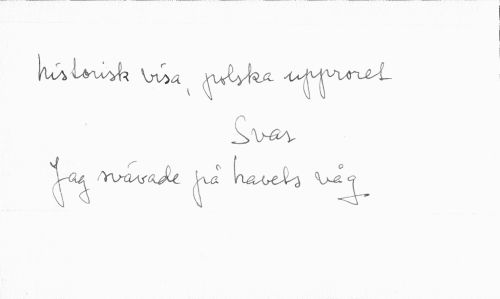 historisk visa, polska upproret
Svar
Jag svävade på havets våg